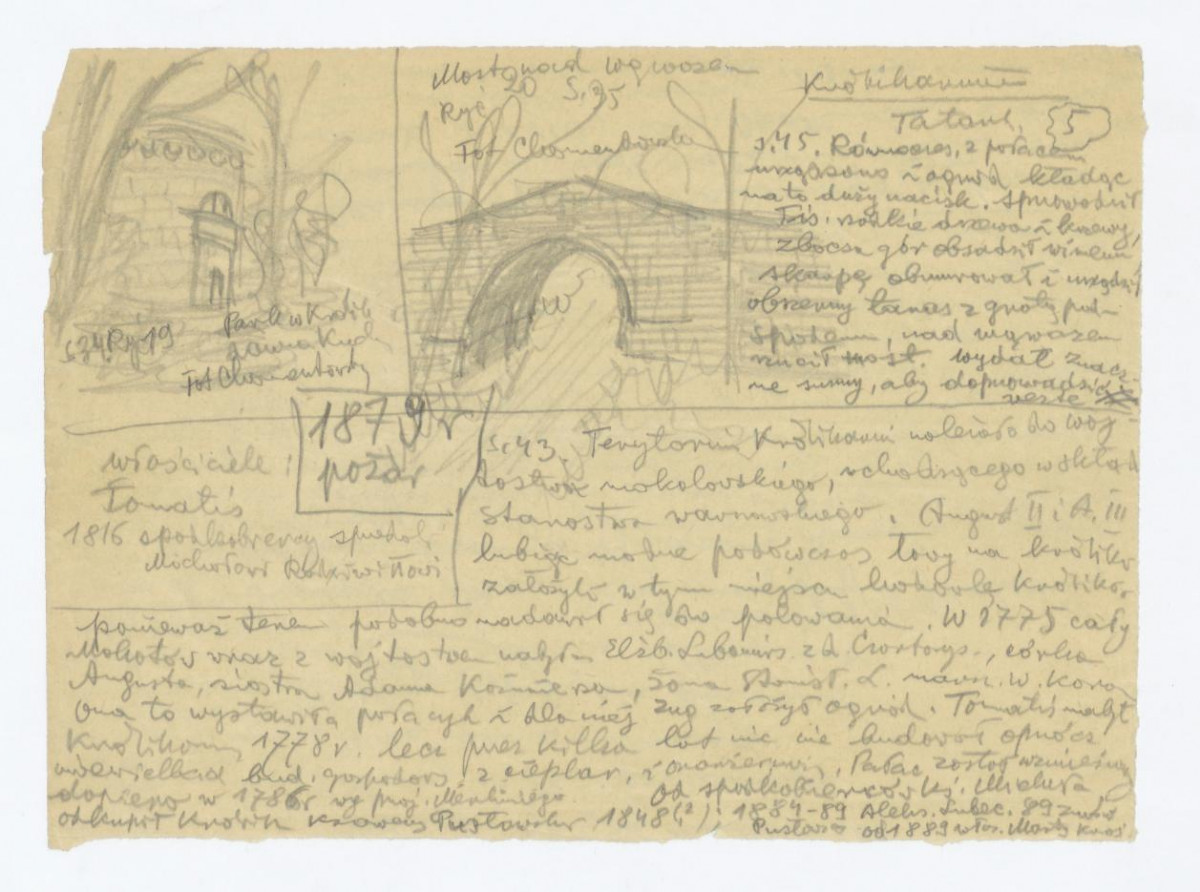 Most nad wąwozem
Ryc 20 s. 35
Fot Chomentowska
s 34 Ryc 19
Park w Królik
Fot Chomentowska
Królikarnia
5
s. 45. Równocześ. z pałacem
urządzono i ogród kładąc
na to duży nacisk. Sprowadził
rzadkie drzewa i krzewy,
zbocza gór obsadził winem
skarpę obmurował i urządził
obszerny taras z grotą pod
spodem, nad wąwozem
rzucił most. wydał znacz-
ne sumy, aby doprowadzić
1879 r
pożar
właściciele:
Tomatis
1816 spadkobiercy sprzedali
Michałowi Radziwiłłowi
s. 43. Terytorium Królikarni należało do wój-
tostwa mokotowskiego, wchodzącego w skład
Starostwa warszawskiego. August II i A. III
lubiąc modne podówczas łowy na króliki
założyli w tym miejscu hodowlę królików,
ponieważ teren podobno nadawał się do polowania. W 1775 cały
Mokotów wraz z wójtostwem nabyła Elżb. Lubomirs. z d. Czartorys., córka
Augusta, siostra Adama Kazimierza, żona Stanisł. L. marsz. w. koron
Ona to wystawiła pałacyk i dla niej Zug założył ogród. Tomatis nabył
Królikarn 1778 r. lecz przez kilka lat nic nie budował oprócz
niewielkich bud. gospodars. z cieplar. i oranżerią. Pałac został wzniesiony
dopiero w 1786 r wg proj. Merliniego od spadkobierców ks. Michała
odkupił Królik Ksawery Pusłowski 1848 (?). 1884-89 Aleks. Lubec. 89 znów
od 1889 właś. Marta Kras